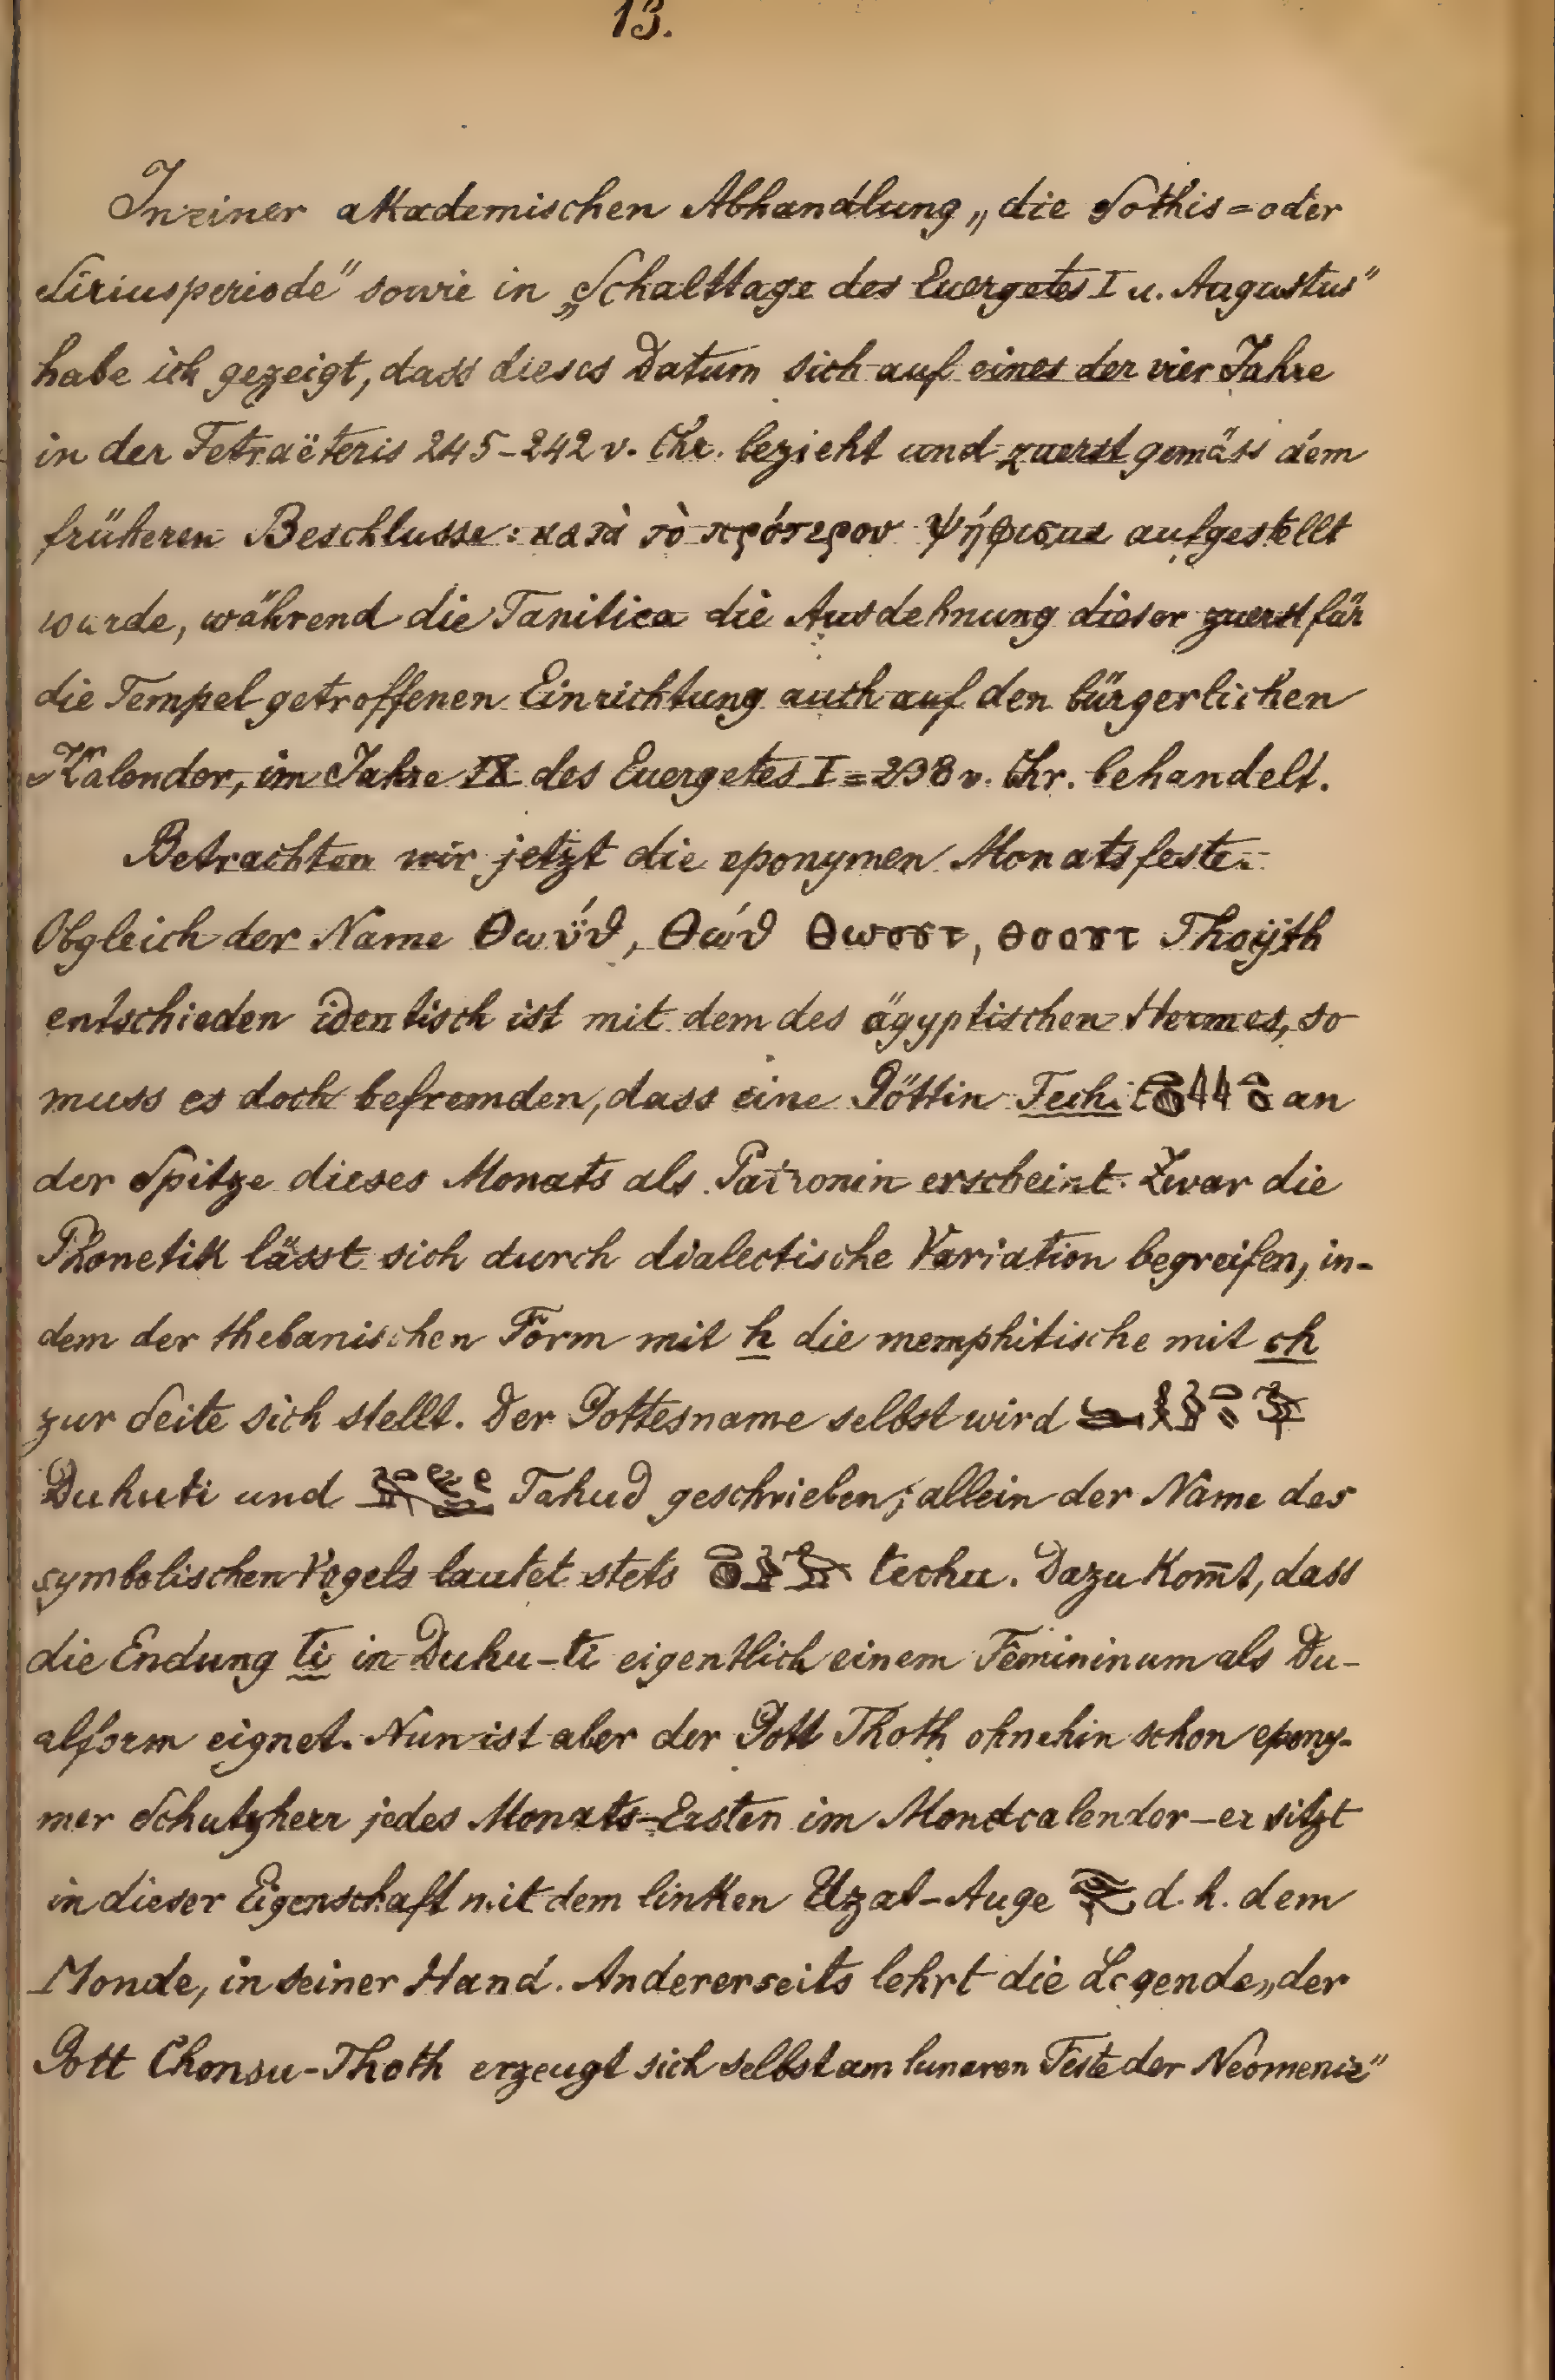 13.
In einer akademischen Abhandlung „die Sothis= oder
Siriusperiode" sowie in „Schalttage des Euergetes I u. Augustus"
habe ich gezeigt, dass dieses Datum sich auf eines der vier Jahre
in der Tetraëteris 245-242 v. Chr. bezieht und zuerst gemäss dem
früheren Beschlusse: κατὰ τὸ πρότερον ψήφισμα aufgestellt
wurde, während die Tanitica die Ausdehnung dieser zuerst für
die Tempel getroffenen Einrichtung auch auf den bürgerlichen
Kalender, im Jahre IX des Euergetes I = 238 v. Chr. behandelt.
Betrachten wir jetzt die eponymen Monatsfeste.
Obgleich der Name Θωΰθ, Θώθ ⲑⲱⲟⲩⲧ, ⲑⲟⲟⲩⲧ Thoyth
entschieden identisch ist mit dem des ägyptischen Hermes, so
muss es doch befremden, dass eine Göttin Techi an
der Spitze dieses Monats als Patronin erscheint. Zwar die
Phonetik lässt sich durch dialectische Variation begreifen, in-
dem der thebanischen Form mit h die memphitische mit ch
zur Seite sich stellt. Der Gottesname selbst wird
Duhuti und Tahud geschrieben; allein der Name des
symbolischen Vogels lautet stets techu. Dazu kom̅t, dass
die Endung ti in Duhu-ti eigentlich einem Femininum als Du-
alform eignet. Nun ist aber der Gott Thoth ohnehin schon epony-
mer Schutzherr jedes Monats-Ersten im Mondcalender - er sitzt
in dieser Eigenschaft mit dem linken Uzat-Auge d. h. dem
Monde, in seiner Hand. Andererseits lehrt die Legende „der
Gott Chonsu-Thoth erzeugt sich selbst am lunaren Feste der Neomenie"